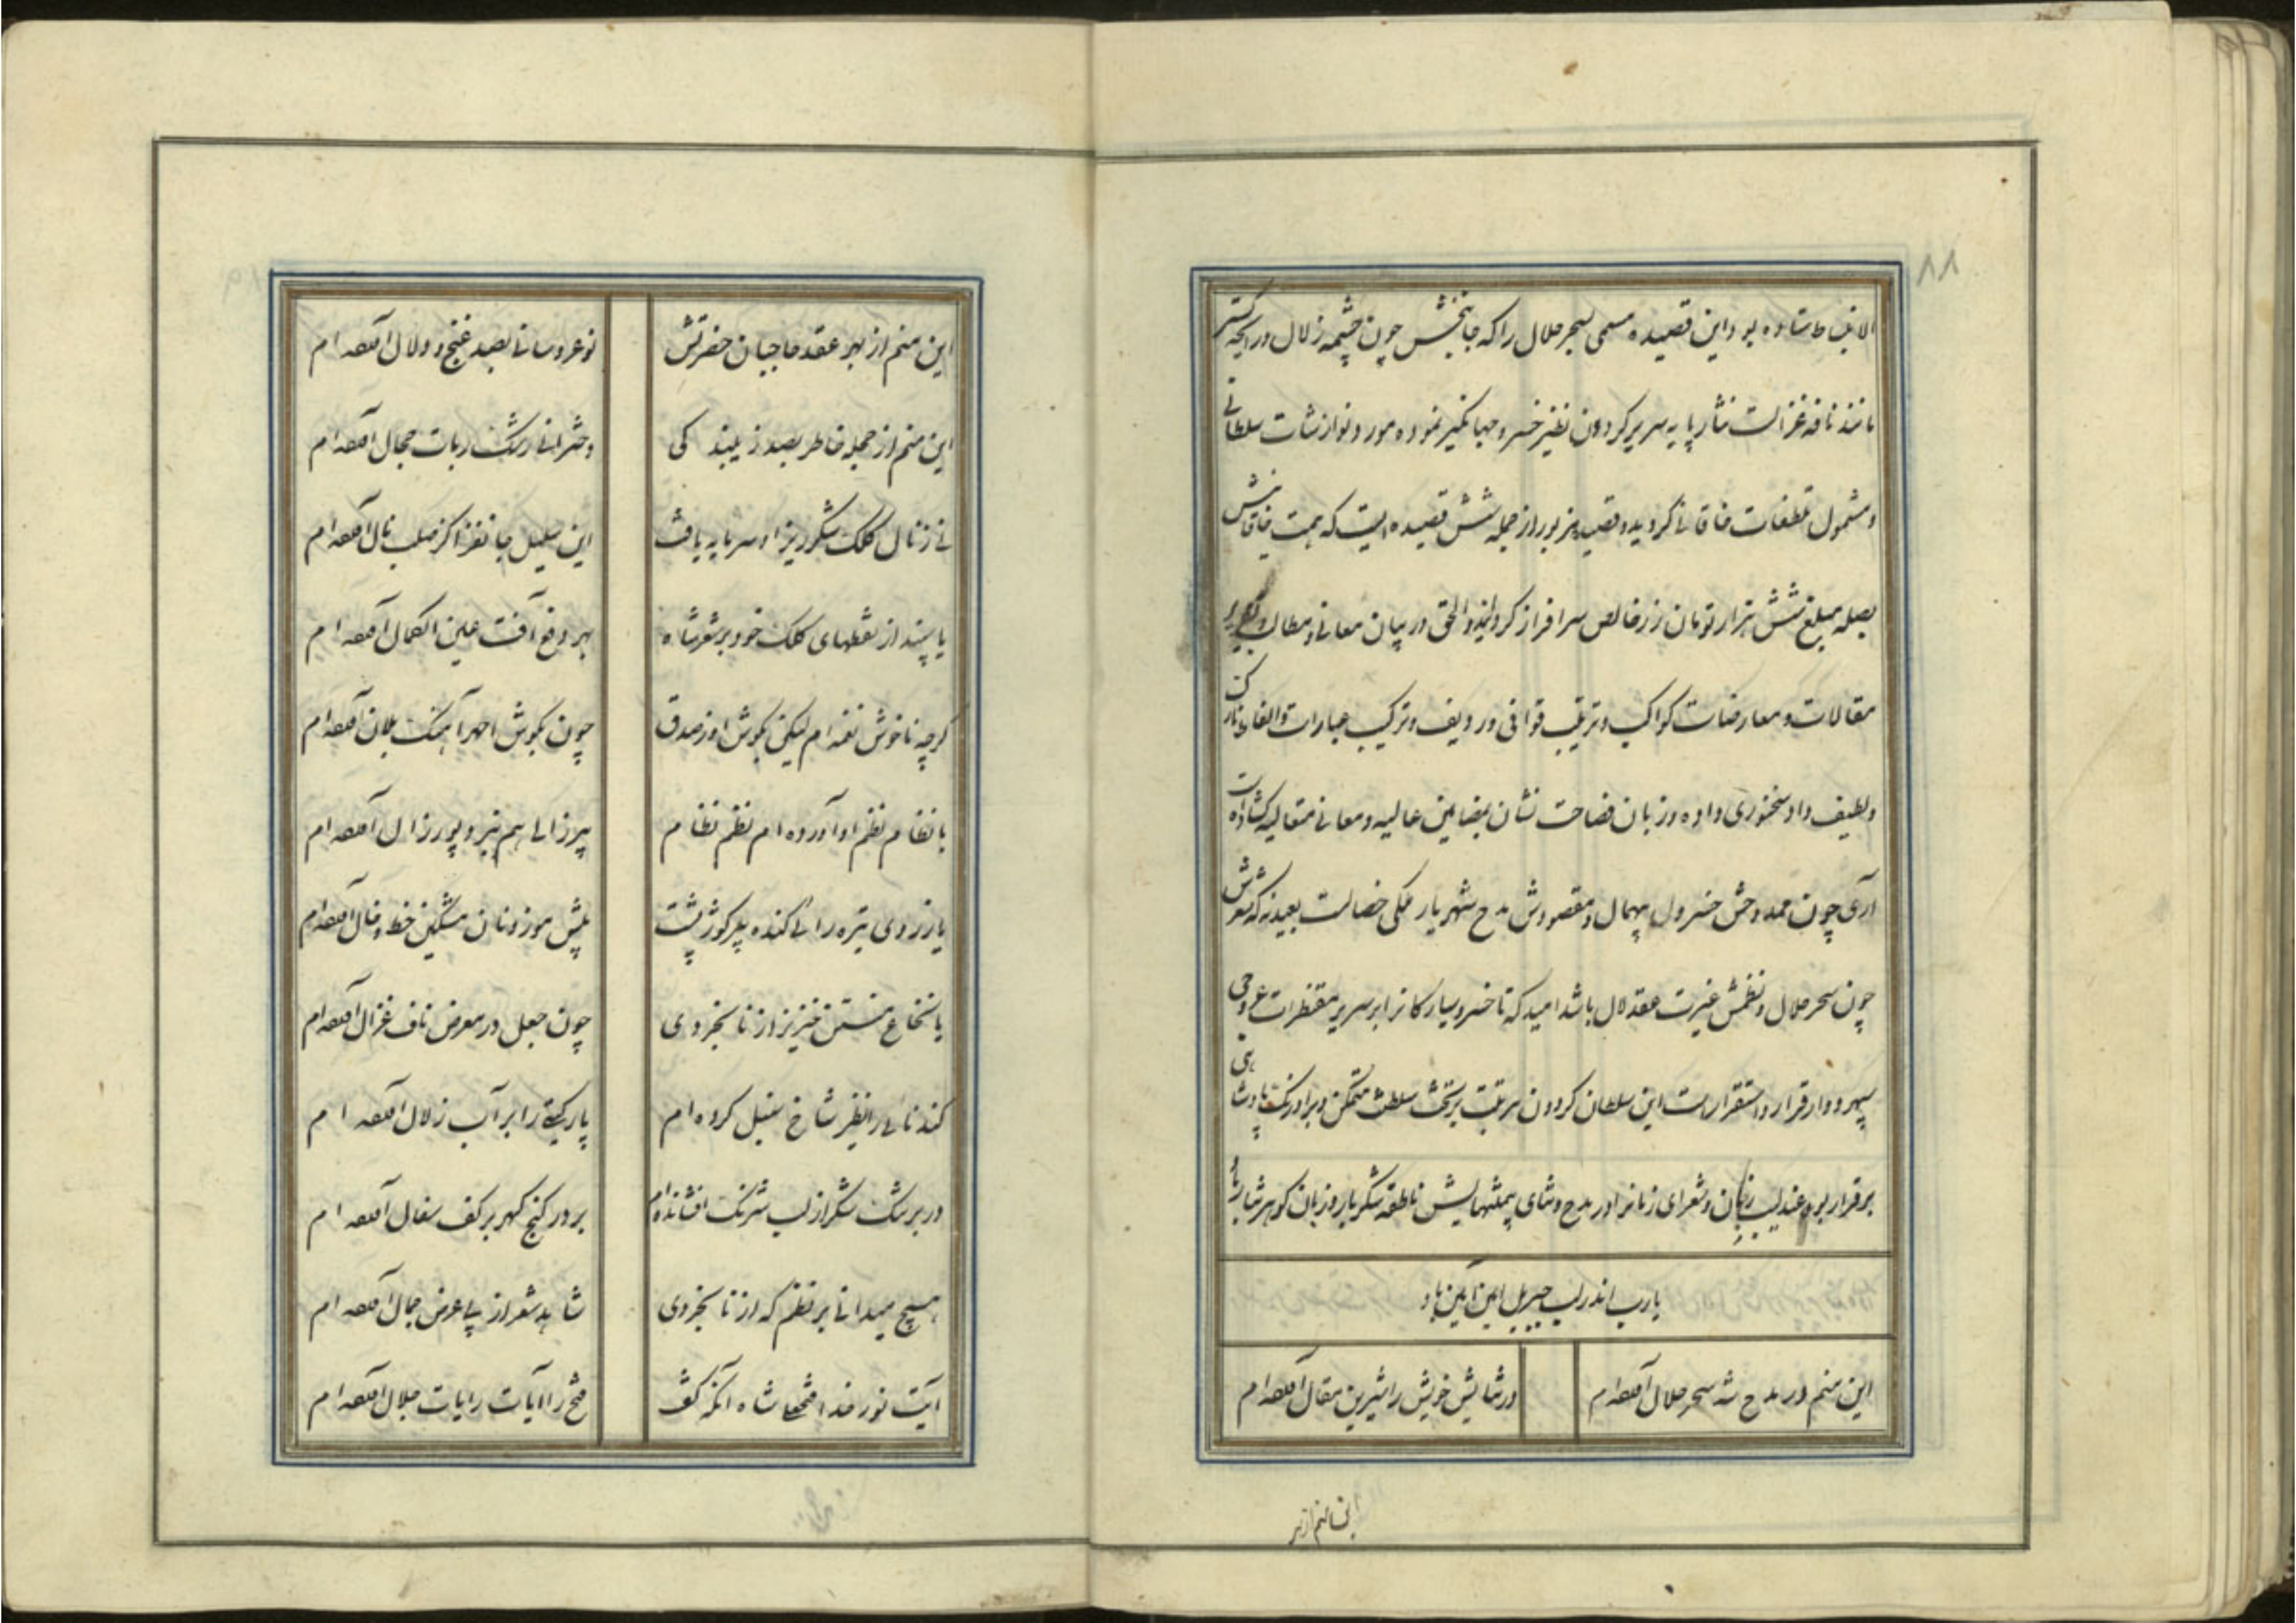 ۸۸
الانبساط ستاده بود و این قصیده مسمی بسحر حلال را که جانبخش چون چشمه زلال و رایحه گستر
مانند نافه غزالست نثار پایه سریر گردون نظیر خسرو جهانگیر نموده مورد نوازشات سلطانی
و مشمول تلطفات خاقانی گردیده و قصیده مزبور از جمله شش قصیده ایست که همت خاقانش
بصله مبلغ شش هزار تومان زر خالص سرافراز گردانید و الحق در بیان معانی و مطالب و
مقالات و معارضات کواکب و ترتیب قوافی و ردیف و ترکیب عبارات و الفاظ نازک
و لطیف داد سخنوری داده و زبان فصاحت نشان بمضامین عالیه و معانی متعالیه گشاده است
آری چون ممدوحش خسرو بیهمال و مقصودش مدح شهریار ملکی خصالست بعید نه که شعرش
چون سحر حلال و نظمش غیرت عقد لال باشد امید که تا خسرو سیارکانرا بر سریر
سپهر دوار قرار و استقرار است این سلطان گردون مرتبت بر تخت سلطنت متمکن و بر اورنگ پادشاهی
برقرار بود و عندلیب زبان و شعرای زمانرا در مدح و ثنای بیمنتهایش ناطقه شکر بار و زبان گوهر نثار باد
یارب اندر لب جبریل امین آمین باد
این منم در مدح شه سحر حلال آورده ام در ثنایش خویش را شیرین مقال آورده ام
این منم از بهر
این منم از بهر عقد حاجبان حضرتش نوعروسانی بصد غنج و دلال آورده ام
این منم از حجله خاطر بصد زیبندگی دخترانی رشک ربات حجال آورده ام
نی ز نال کلک شکرریز او سرمایه یافت این سلیل جانفزا کز صلب نال آورده ام
یا سپند از نقطهای کلک خود بر شعر شاه بهر دفع آفت عین الکمال آورده ام
گرچه ناخوش نغمه ام لیکن بگوش او ز صدق چون بگوش احمد آهنگ بلال آورده ام
با نظام نظم او آورده ام نظم نظام پیرزالی هم نبرد پور زال آورده ام
یا ز زردی تیره رائی گنده پیر گوژپشت پیش موزونان مشگین خط و خال آورده ام
با نخاع منتن خنزیز از نابخردی چون جعل در معرض ناف غزال آورده ام
گندنائی را نظیر شاخ سنبل کرده ام پارگینی را بر آب زلال آورده ام
در بر شکر از لب شرنگ افشانده ام بر در گنج گهر بر کف سفال آورده ام
هیچ میدانی بر نظم که از نابخردی شاهد شعر از پی عرض جمال آورده ام
آیت نور خدا فتحعلی شاه آنکه گفت فتح را آیات رایات جلال آورده ام